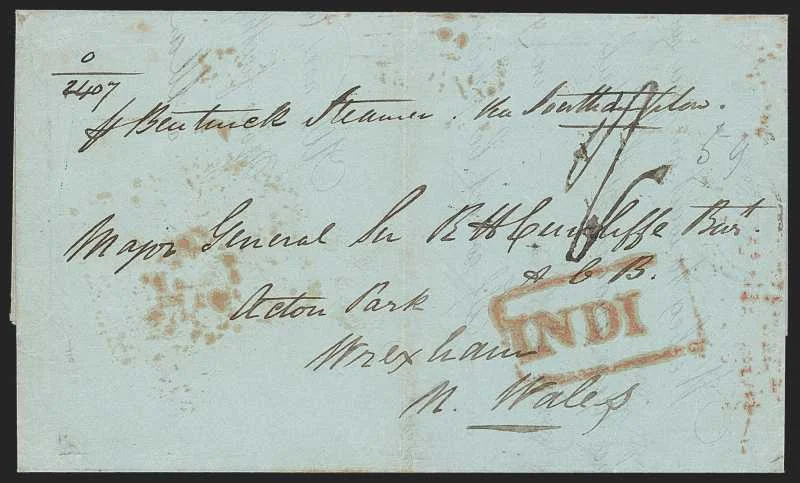 0
2407
pr Bentinck Steamer. via Southampton.
59
Major General Sir R H Cunliffe Bart.
A C B.
Acton Park
INDI
Wrexham
N. Wales